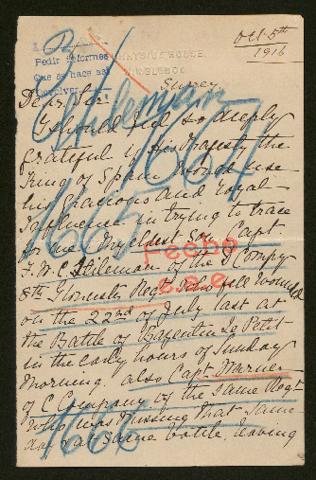 Oct. 5th
1916
Pedir informes
Que se hace así
Surrey
Dear Sir:
I should feel so deeply
grateful if His Majesty the
King of Spain would use
his Gracious and Royal
Influence in trying to trace
for me my eldest Son Capt.
F. W. C. Stileman of the D Compy
8th Gloucester Regt. who fell wounded
on the 22nd of July last at
the Battle of Bazentin Le Petit
in the early hours of Sunday
Morning. also Capt. Warner
of C Company of the same Regt
who was missing that same
day at same battle, leaving
Stileman
Fecha